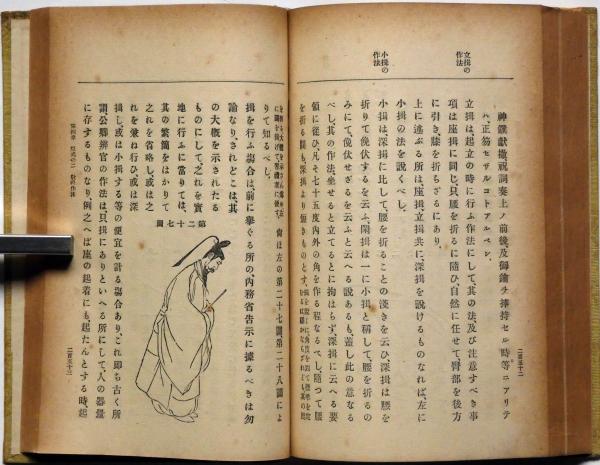 立揖の作法
小揖の作法
神饌獻撤祝詞奏上ノ前後及御鑰ヲ捧持セル時等ニアリテ
ハ、正笏セザルコトアルベシ、
立揖は、起立の時に行ふ作法にして、其の法及び注意すべき事
項は座揖に同じ、只腰を折るに隨ひ、自然に任せて、臀部を後方
に引き、膝を折らざるにあり、
上に述ぶる所は、座揖立揖共に、深揖を說けるものなれば、左に
小揖の法を說くべし、
小揖は深揖に比して、腰を折ることの淺きを云ひ、深揖は腰を
折りて俛伏するを云ふ、
みにて、俛伏せざるを云ふと云へる說あるも、蓋し此の意なる
べし、其の作法、坐せると立てるとに拘はらず、深揖に云へる要
領に從ひ、凡そ七十五度內外の角を作る程なるべし、隨つて腰
を折る間も、深揖より短きものとす、
二百五十二
尙ほ左の第二十七圖、第二十八圖によ
りて知るべし、
揖を行ふ場合は、前に擧ぐる所の、內務省吿示に據るべきは勿
論なり、されどこは、其
の大槪を示されたる
ものにして、之れを實
地に行ふに當りては、
其の繁簡をはかりて
之れを省略し、或は之
れを兼ね行ひ、或は深
揖し、或は小揖する等の便宜を計る場合あり、これ卽ち古く所
謂公卿辨官の作法は、只揖にありといへる所にして、人の器量
に存するものなり、例之へば座の起着にも、起たんとする時、起
第二十七圖
二百五十三